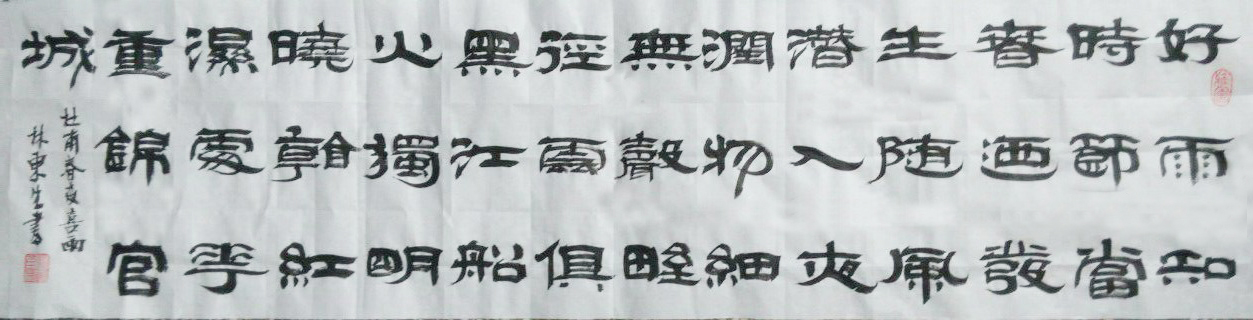 好雨知
時節當
春迺發
生随風
潜入夜
潤物細
無聲野
徑雲俱
黑江船
火獨明
曉看紅
濕處花
重錦官
城
杜甫春夜喜雨
林東生書